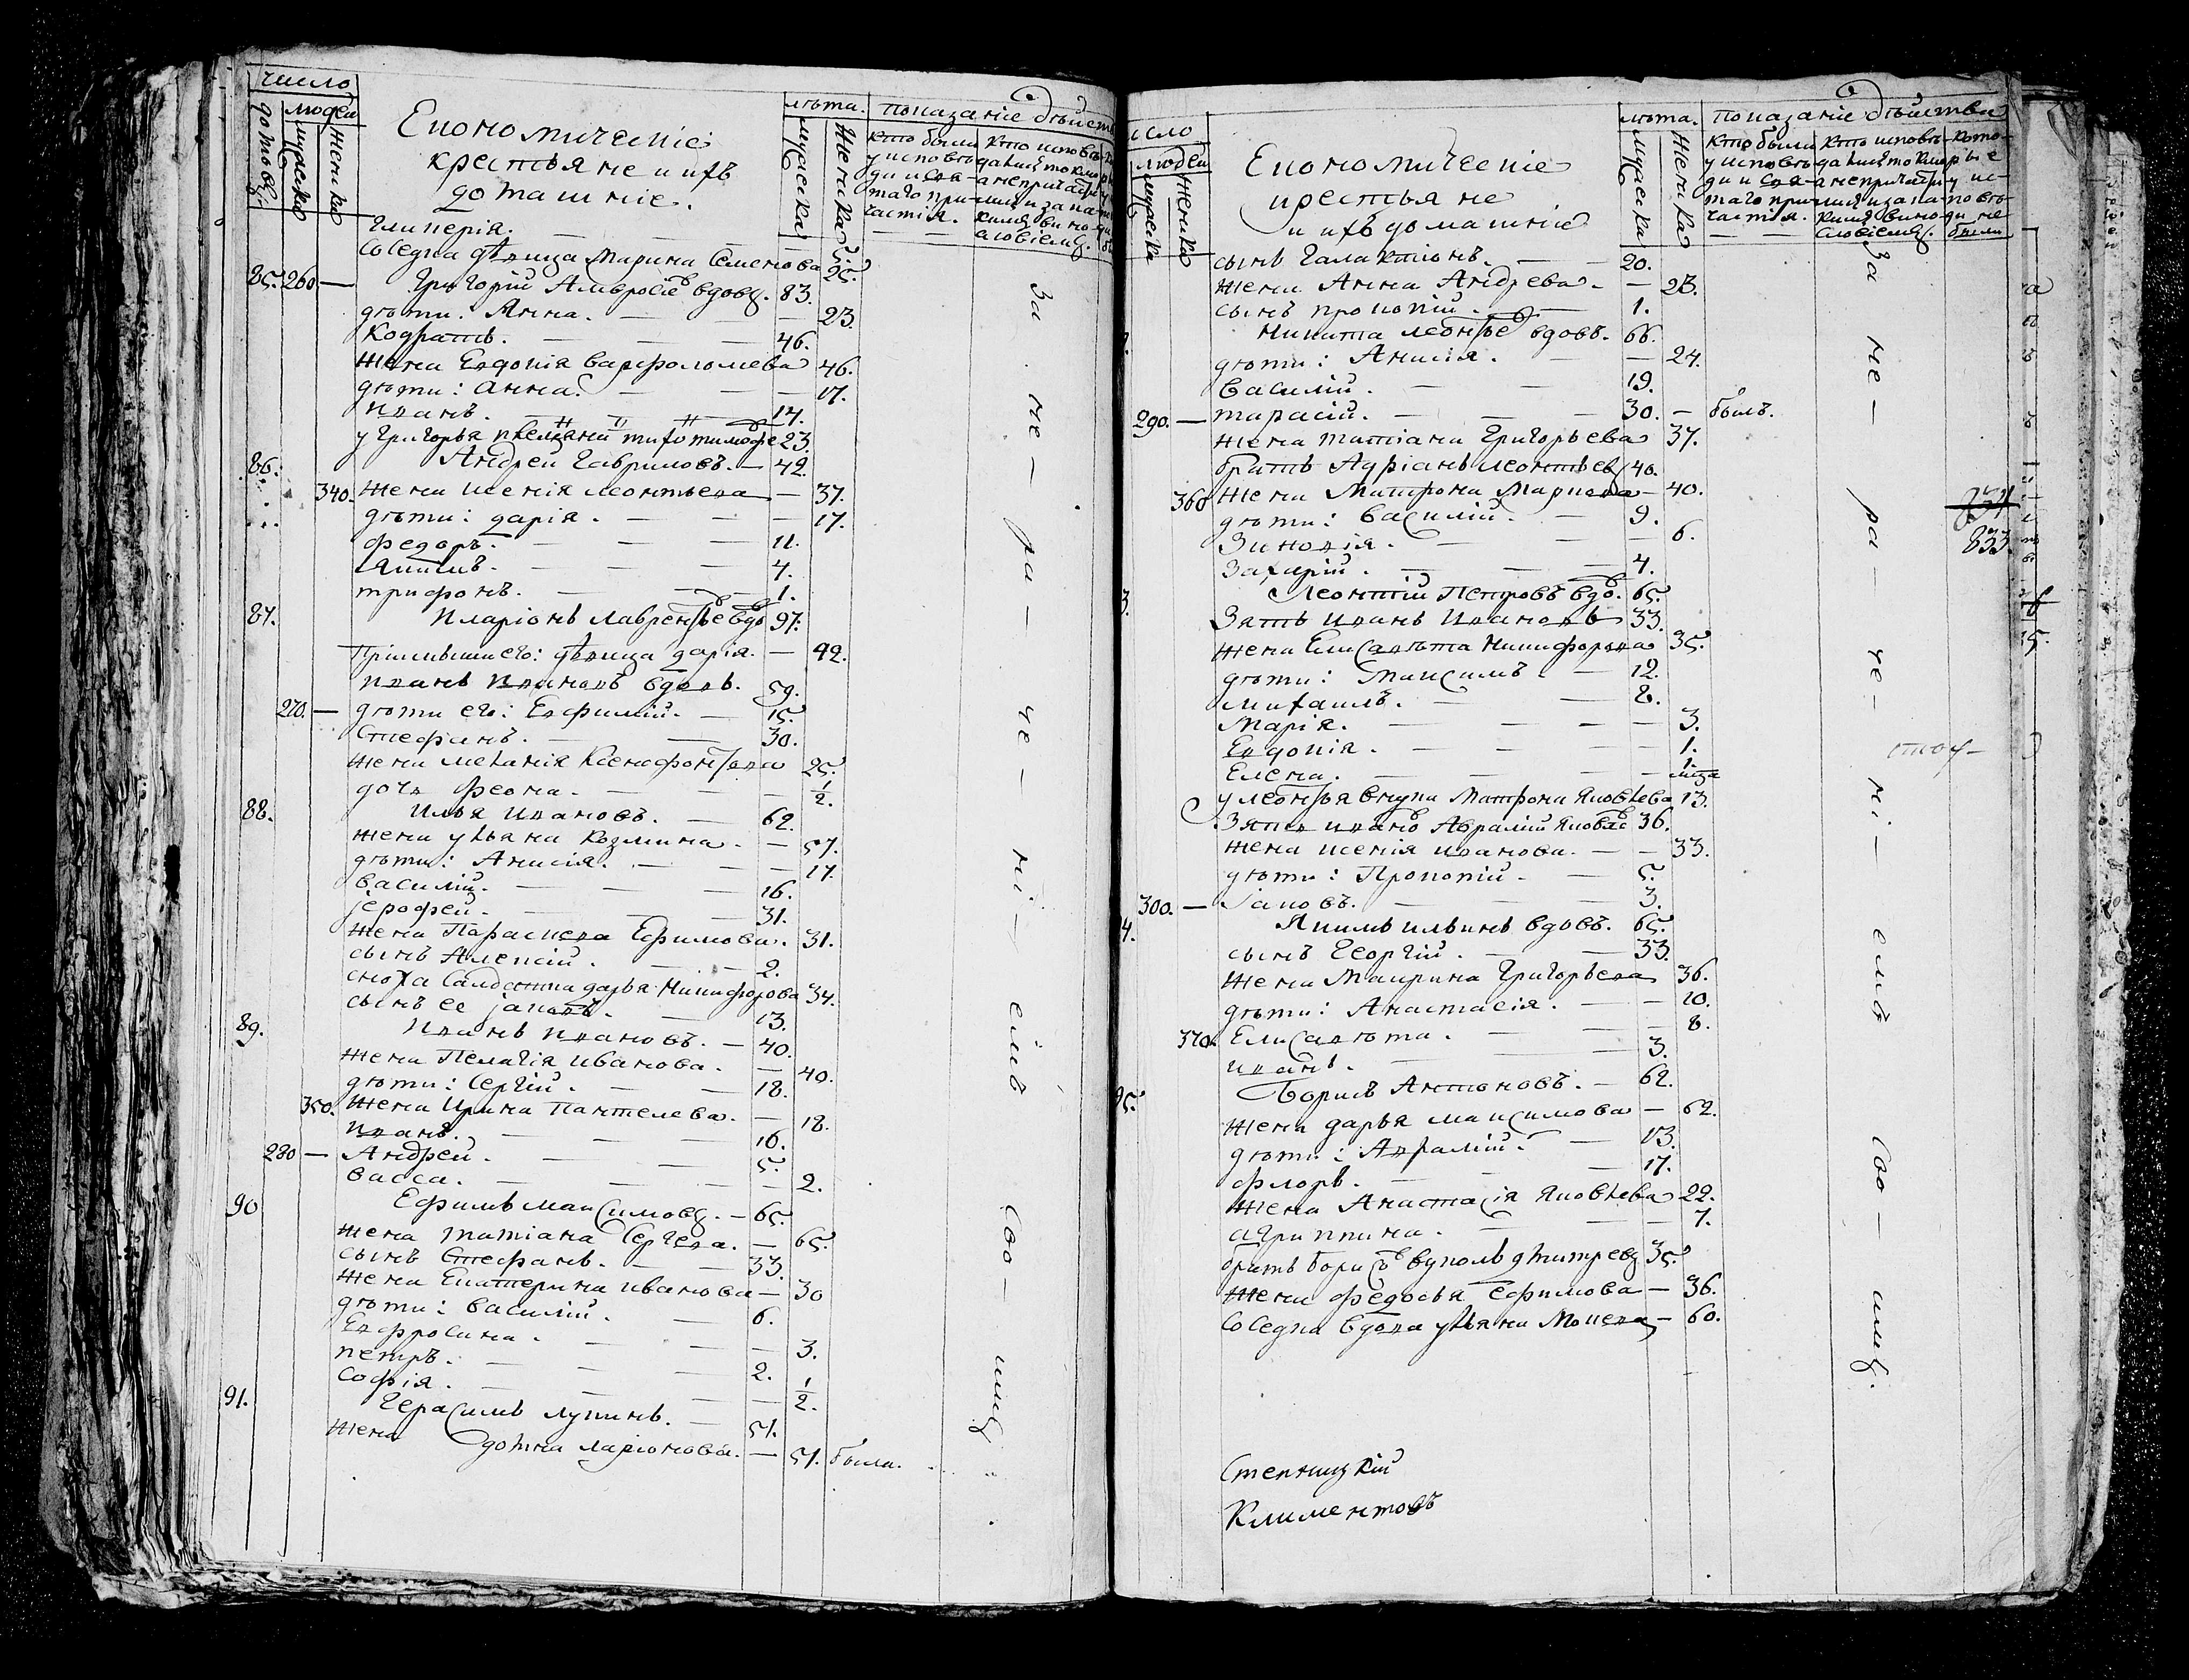 число
людей
дворовъ
мужеска
женска
Економическіе
крестьяне и ихъ
домашніе.
лѣта.
мужеска
женска
показаніе дѣйств
кто были
у исповѣ-
ди и свя-
таго при-
частія.
кто исповѣ-
дался токмо
а не причасти
лися и за ка-
кимъ вино-
словіемъ.
Гликерія. — 5.
Соседка дѣвица Марина Семенова 25.
85. 260 — Григорій Амвросіевъ вдовъ. 83.
дѣти: Анна. — 23.
Кодратъ. — 46.
жена Евдокія Варфоломеева 46.
дѣти: Анна. — 17.
Иванъ. — 14.
у Григорья тимофе 23.
86. Андрей Гавриловъ. — 42.
340. жена Ксенія Леонтьева — 37.
дѣти: дарія. — 17.
федоръ. — 11.
Якимъ. — 4.
трифонъ. — 1.
87. Иларіонъ Лаврентьевъ вдо 97.
Пріимыши его: дѣвица дарія. — 42.
Иванъ Ивановъ вдовъ. 59.
270. — дѣти его: Евфимій. — 15.
Стефанъ. — 30.
жена меланія Ксенофонтова 25.
дочь феона. — 1/2.
88. Илья Ивановъ. — 62.
жена ульяна Козмина. — 57.
дѣти: Анисія. — 17.
василій. — 16.
јерофей. — 31.
жена Параскева Ефимова. 31.
сынъ Алексій. — 2.
сноха Салдатка дарья Никифорова 34.
сынъ ее јаковъ. — 13.
89. Иванъ Ивановъ. — 40.
жена Пелагія Иванова. — 40.
дѣти: Сергій. — 18.
350. жена Ирина Пантелева. — 18.
Иванъ. — 16.
280 — Андрей. — 5.
васса. — 2.
90 Ефимъ Максимовъ. — 65.
жена татіана Сергева. — 65.
сынъ Стефанъ. — 33.
жена Екатерина иванова — 30
дѣти: василій. — 6.
Евфросина. — 3.
петръ. — 2.
Софія. — 1/2.
91. Герасимъ лукинъ. — 51.
жена домна ларіонова. — 51. была.
За — не — ра — че — ні — емъ Сво — имъ
исло
людей
мужеска
женска
Економическіе
крестьяне
и ихъ домашніе
лѣта.
мужеска
женска
показаніе дѣйства
кто были
у исповѣ-
ди и свя-
таго при-
частія.
кто исповѣ-
дался токмо
а не причасти
лися и за ка-
кимъ вино-
словіемъ.
кото-
рые
у ис-
повѣ-
ди не
были
сынъ Галактіонъ. — 20.
жена Анна Андрева. — 23.
сынъ прокопій. — 1.
Никита леонтьевъ вдовъ. 66.
дѣти: Анисія. — 24.
василій. — 19.
290. — тарасій. — 30. — былъ.
жена татіана Григорьева 37.
братъ Адріанъ леонтьев 40.
360 жена Матрона Маркева — 40.
дѣти: василій. — 9.
Зиновія. — 6.
Захарій. — 4.
3. Леонтій Петровъ вдо. 65.
Зять Иванъ Ивановъ 33.
жена Елисавѣта Никифорова 35.
дѣти: Максимъ — 12.
михаилъ. — 8.
марія. — 3.
Евдокія. — 1.
Елена. — 1.
у леонтья внука Матрона Яковлева 13.
Зять иванъ Авраміи Яковле 36.
жена ксенія иванова. — 33.
дѣти: Прокопій. — 5.
300. — јаковъ. — 3.
4. Якимъ ильинъ вдовъ. 65.
сынъ Георгій. — 33.
жена Маврина Григорьева 36.
дѣти: Анастасія. — 10.
370. Елисавѣта. — 8.
иванъ. — 3.
95. Борисъ Антоновъ. — 62.
жена дарья максимова — 62.
дѣти: Аврамій. — 13.
флоръ. — 17.
жена Анастасія Яковлева 22.
агриппина. — 7.
братъ борисовъ вуколъ дмитревъ 35.
жена федосья Ефимова — 36.
Соседка вдова ульяна Мокева — 60.
За не — ра — че — ні — емъ Сво — имъ.
833.
Стекницкій
Климентовъ